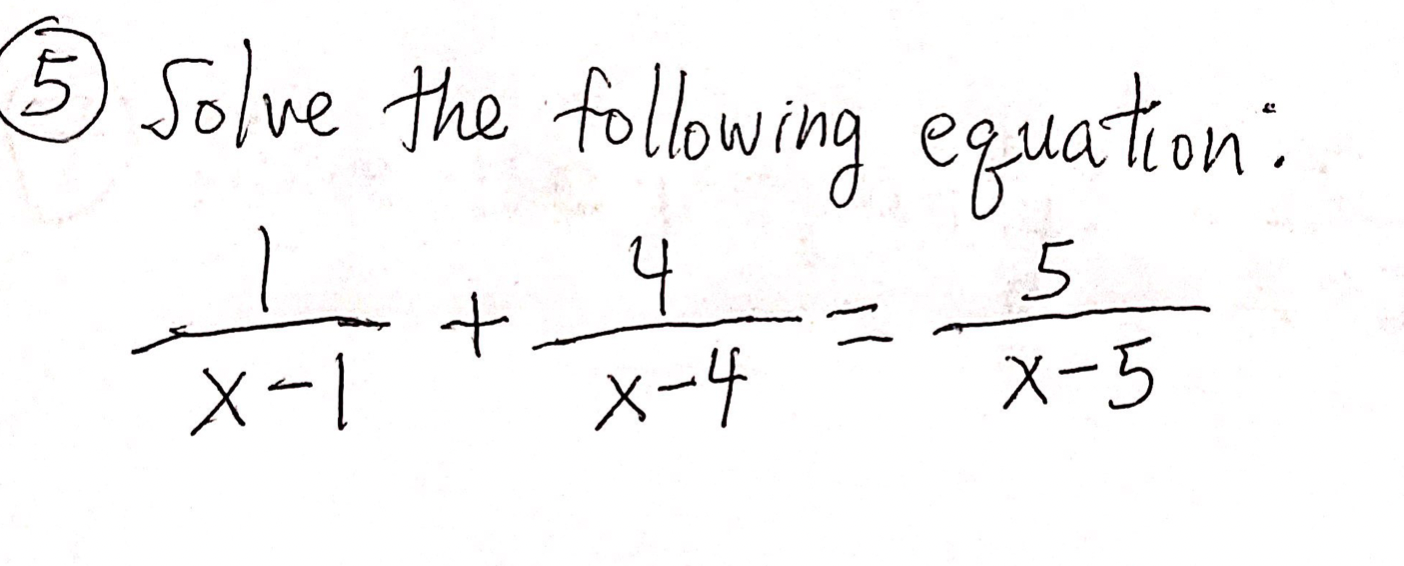 ⑤ Solve the following equation:
1/(x-1) + 4/(x-4) = 5/(x-5)